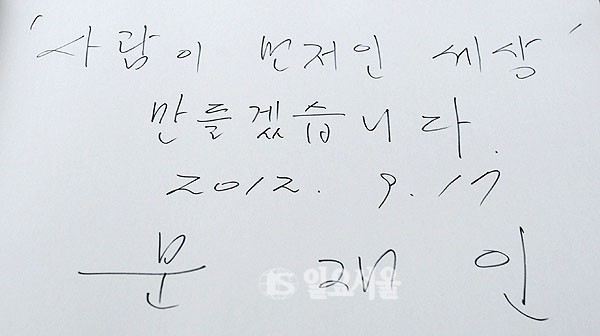 '사람이 먼저인 세상'
만들겠습니다.
2012. 9. 17
문재인
일요서울